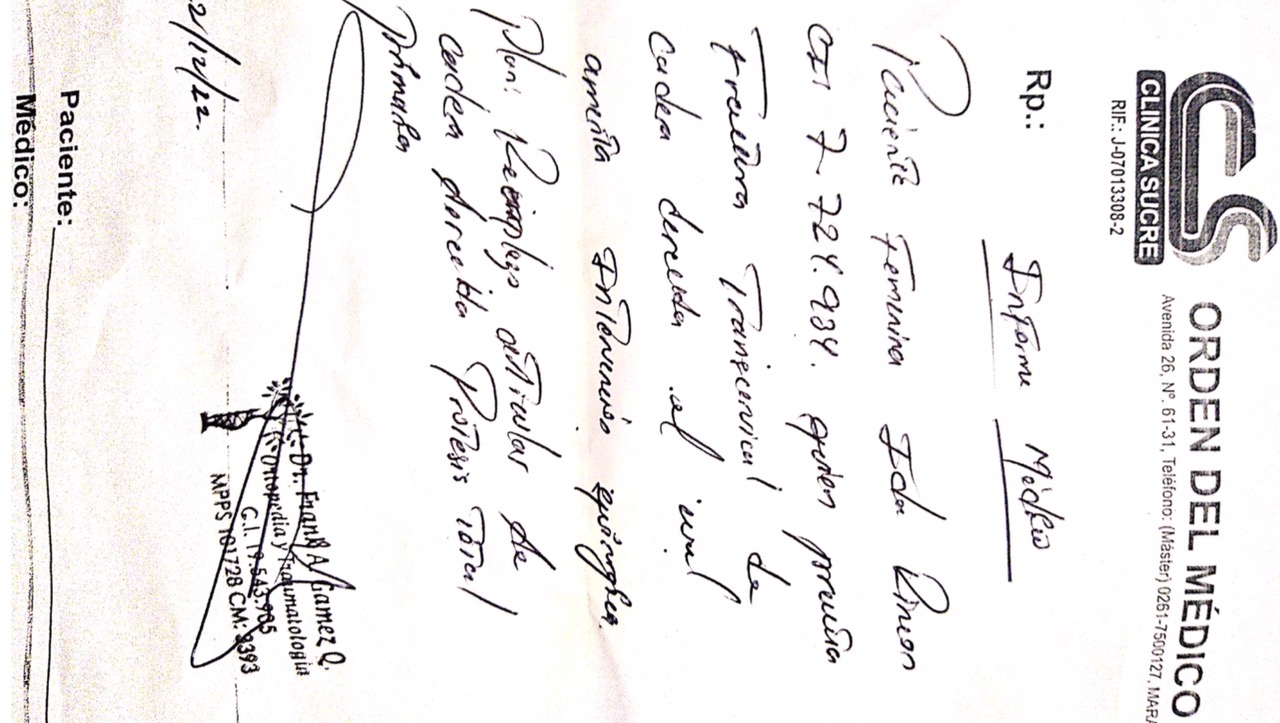 CS
CLINICA SUCRE
RIF.: J-07013308-2
ORDEN DEL MÉDICO
Avenida 26, Nº. 61-31, Teléfono: (Máster) 0261-7500127, MARA
Rp.:
Informe Médico
Paciente Femenina Ida Rincon
CI: 7-724.934. quien presenta
Fractura Transcervical de
Cadera derecha el cual
amerita Intervencion quirurgica.
Plan: Reemplazo articular de
Cadera derecha Protesis Total
Primaria
Dr. Frank A. Gamez Q.
Ortopedia y Traumatologia
C.I. 19.543.705
MPPS 101728 CM: 9393
2/12/22.
Paciente:
Médico: